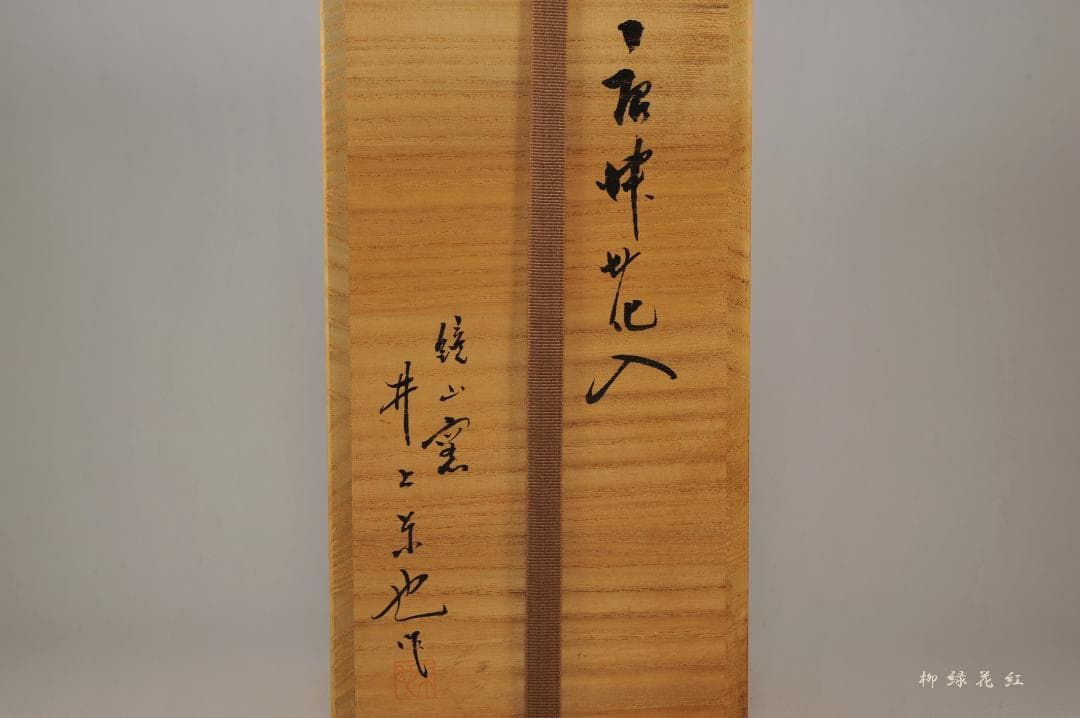 唐津花入
鏡山窯
井上东也作
柳緑花紅